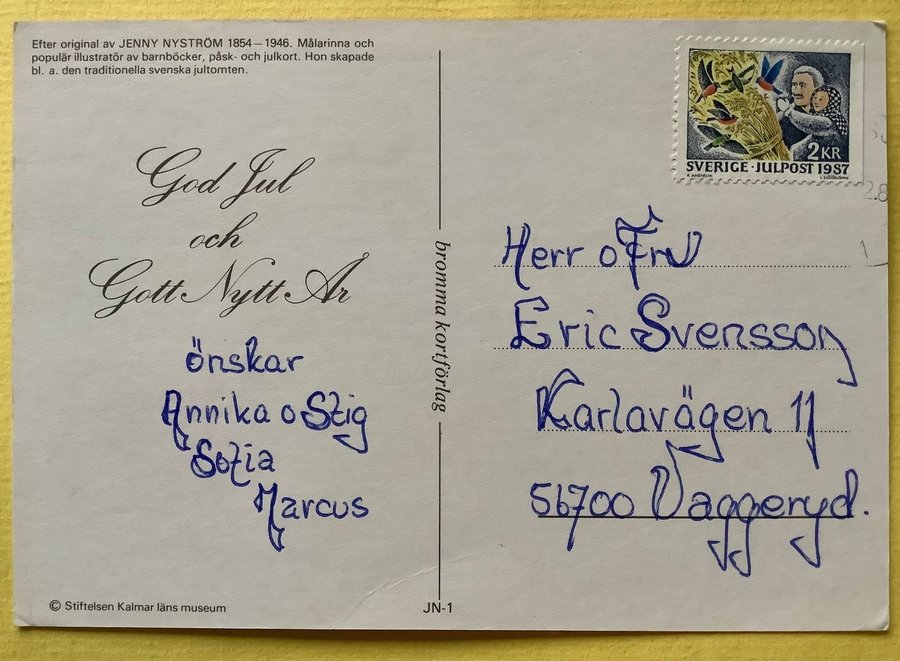 Efter original av JENNY NYSTRÖM 1854–1946. Målarinna och
populär illustratör av barnböcker, påsk- och julkort. Hon skapade
bl. a. den traditionella svenska jultomten.
God Jul
och
Gott Nytt År
önskar
Annika o Stig
Sofia
Marcus
© Stiftelsen Kalmar läns museum
JN-1
bromma kortförlag
2KR
SVERIGE · JULPOST 1987
Herr o Fru
Eric Svensson
Karlavägen 11
56700 Vaggeryd.